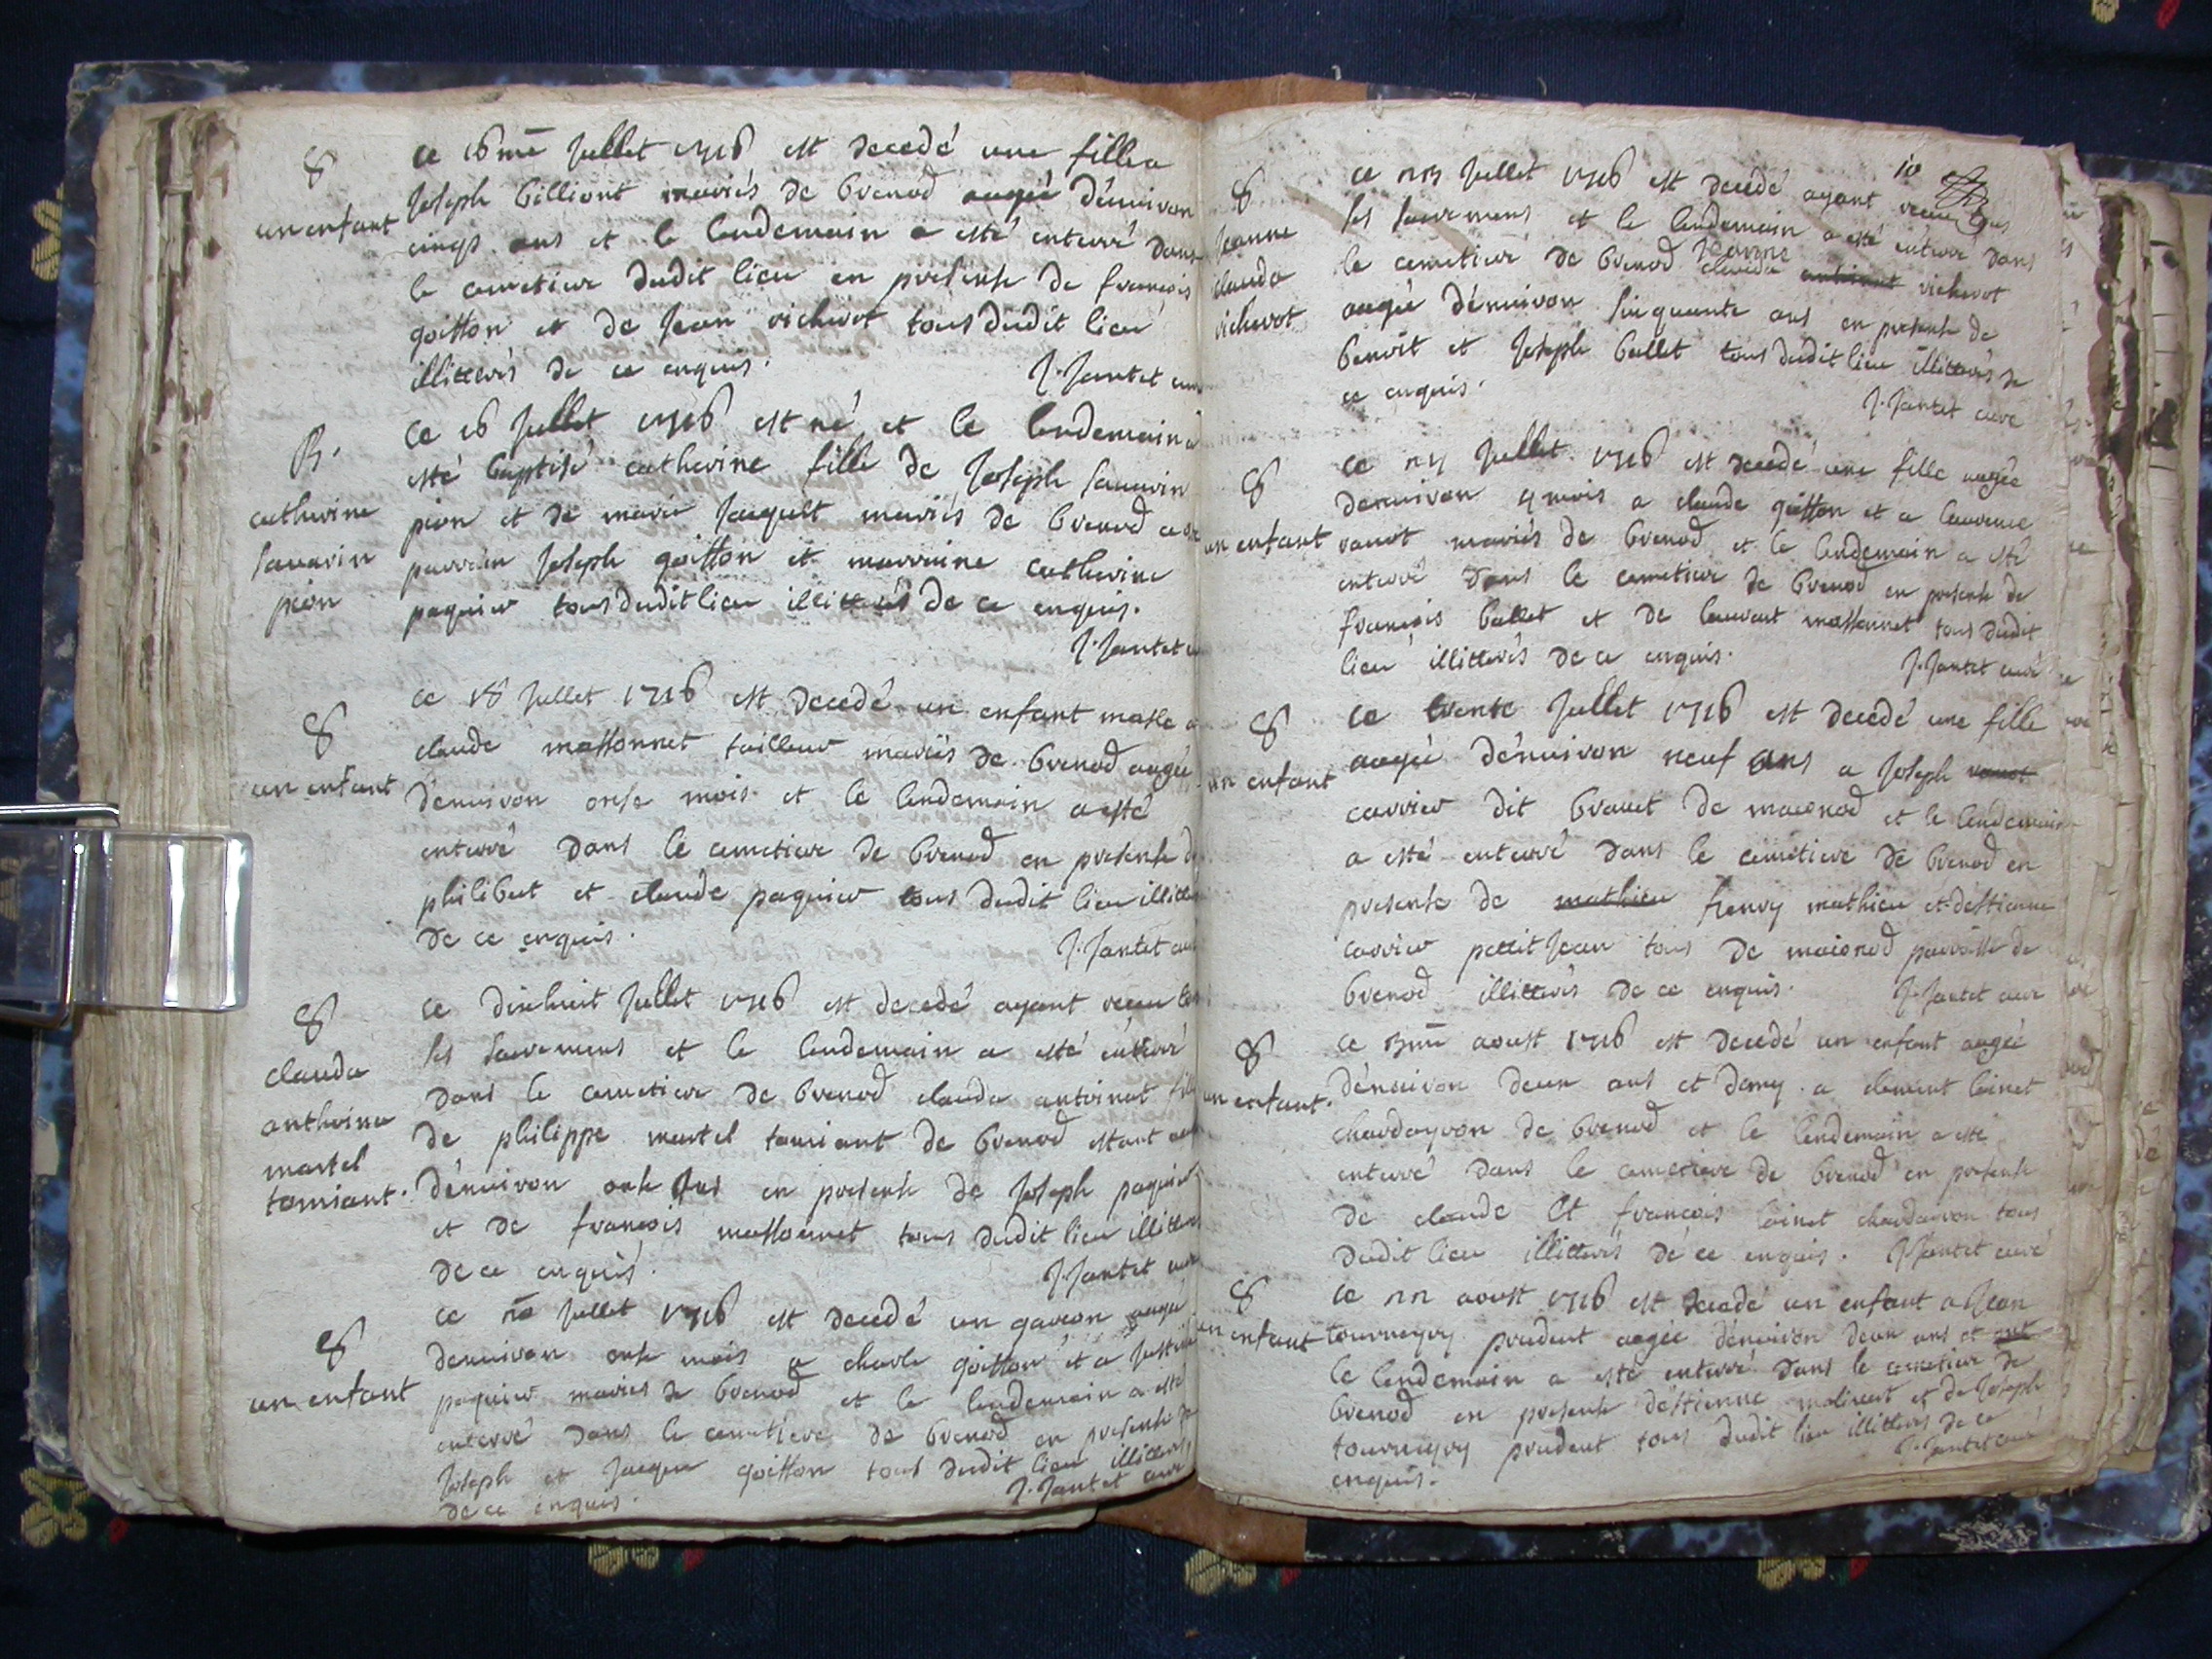 8
un enfant
ce 16me Jullet 1716 est decedé une fille a
Joseph billiont mariés de brenod augé dénuiron
cinqs ans et le lendemain a esté enterré dans
le cemetiere dudit lieu en presense de francois
goitton et de Jean vicherot tous dudit lieu
illitterés de ce enquis.
J. Jantet cure
B.
catherine
sauarin
pion
Ce 16 Jullet 1716 est né et le lendemain a
esté baptisé catherine fille de Joseph sauarin
pion et de marie Jacquet mariés de brenod
parrain Joseph goitton et marraine catherine
paquier tous dudit lieu illitterés de ce enquis.
J. Jantet
8
un enfant
ce 18 Jullet 1716 est decedé un enfant masle a
claude massonnet tailleur mariés de brenod augé
denuiron onse mois et le lendemain a esté
enterré dans le cemetiere de brenod en presense de
philibert et claude paquier tous dudit lieu
de ce enquis.
J. Jantet
8
clauda
anthoina
martel
tamiant.
ce dixhuit Jullet 1716 est decedé ayant receu tous
les sacremens et le lendemain a esté enterré
dans le cemetiere de brenod clauda antoinat
de philippe martel tamiant de brenod estant
dénuiron onse ans en presense de Joseph paquier
et de francois massonnet tous dudit lieu
de ce enquis.
J. Jantet
8
un enfant
ce Jullet 1716 est decedé un garcon augé
denuiron onse mois a charle goitton et a
paquier mariés de brenod et le lendemain a esté
enterré dans le cemetiere de brenod en presense de
Joseph et Jacque goitton tous dudit lieu illitterés
de ce enquis.
J. Jantet curé
10
8
Jeanne
clauda
vicherot
ce Jullet 1716 est decedé ayant receu tous
les sacremens et le lendemain a esté enterré dans
le cemetiere de brenod Jeanne clauda vicherot
augée dénuiron sinquante ans en presense de
benoit et Joseph ballet tous dudit lieu illitterés de
ce enquis.
J. Jantet cure
8
un enfant
ce Jullet 1716 est decedé une fille augée
denuiron 4 mois a claude goitton et a laurence
mariés de brenod et le lendemain a esté
enterré dans le cemetiere de brenod en presense de
francois ballet et de laurent massonnet tous dudit
lieu illitterés de ce enquis.
J. Jantet curé
8
un enfant
ce trente Jullet 1716 est decedé une fille
augée dénuiron neuf ans a Joseph
carrier dit brauet de macnod et le lendemain
a esté enterré dans le cemetiere de brenod en
presense de mathieu henry mathieu et déstienne
carrier petit Jean tous de maicnod parroisse de
brenod illitterés de ce enquis.
J. Jantet cure
8
un enfant.
ce aoust 1716 est decedé un enfant augé
dénuiron deux ans et demy a clement loinet
chardeyron de brenod et le lendemain a esté
enterré dans le cemetiere de brenod en presense
de claude et francois loinet chardeyron tous
dudit lieu illitterés de ce enquis.
J. Jantet curé
8
un enfant
ce aoust 1716 est decedé un enfant a Jean
prudent augée dénuiron deux ans et
le lendemain a esté enterré dans le cemetiere de
brenod en presense déstienne et de Joseph
prudent tous dudit lieu illitterés de ce
enquis.
J. Jantet curé